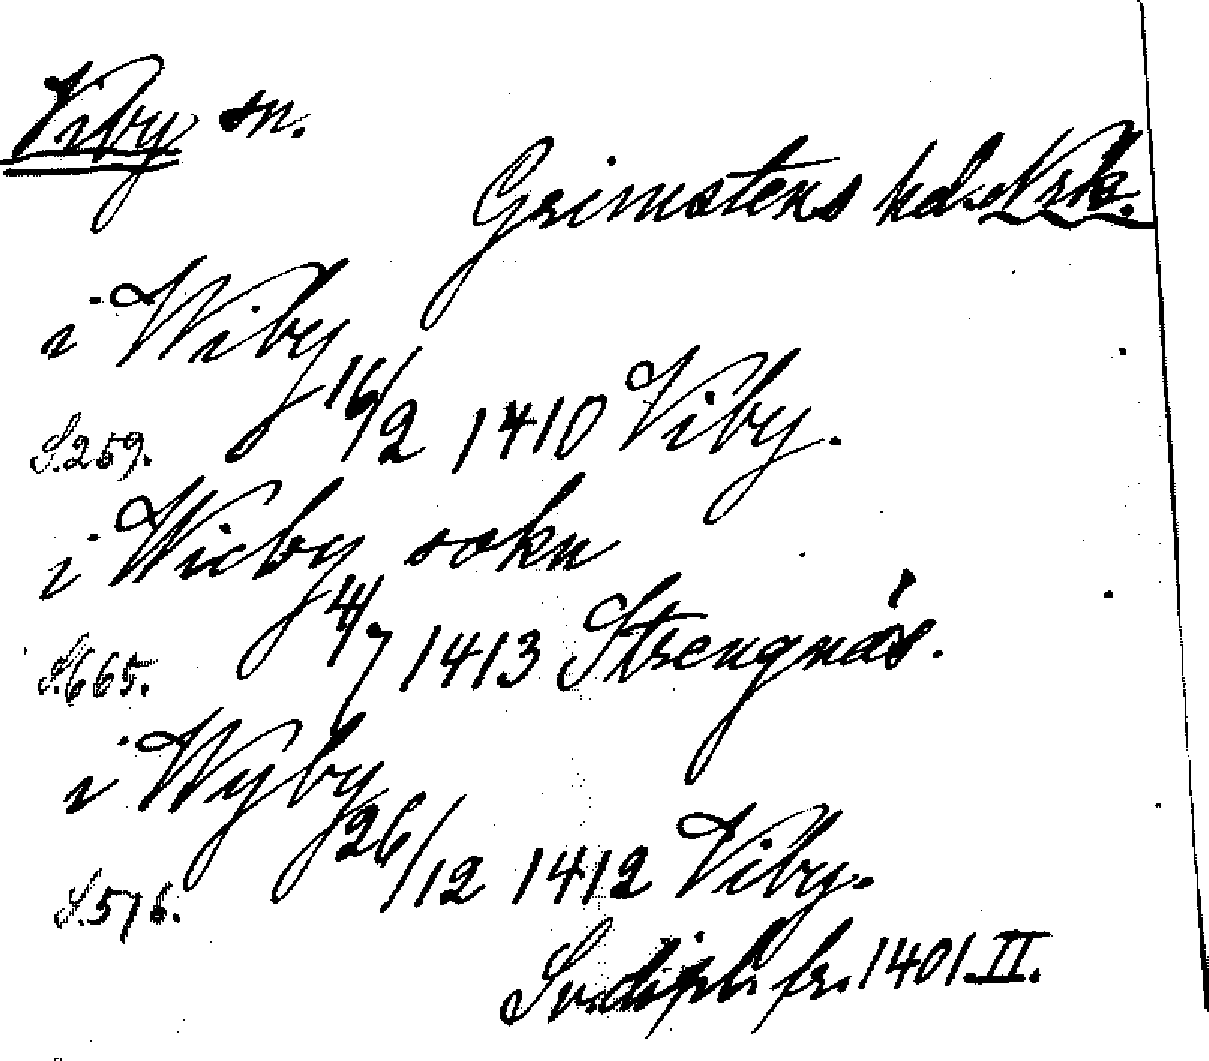 Viby sn.
Grimstens hd. Nrk.
i Wiby
16/2 1410 Viby.
S.259.
i Wicby sokn
4/7 1413 Strengnäs.
S.665.
i Wyby
26/12 1412 Viby.
S.576.
Sv. dipl. fr. 1401.II.